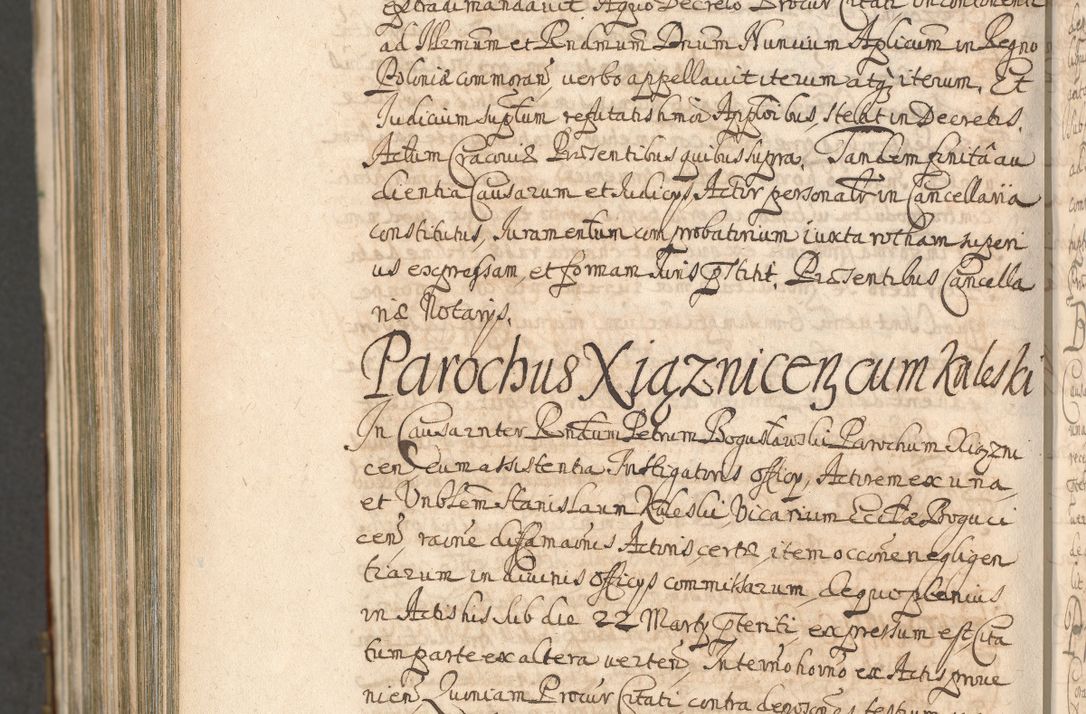 extradi mandavit A quo Decreto Procur Citati
ad Illmum et Rndmum Dnum Nunium Aplicum in Regno
Poloniæ commoran, verbo appellavit iterum atq; iterum. Et
Judicium supltum refutatis hmoi Applõibus, stetit in Decretis.
Actum Cracoviæ Præsentibus quibus supra. Tandem finitâ au
dientia Causarum et Judicys, Actor personaltr in Cancellaria
constitutus, Juramentum comprobatorium iuxta rotham superi
us expressam, et formam Juris pstitit. Præsentibus Cancella
riæ Notarys.
Parochus Xiąznicen cum Kaleski
In Causa inter Rndum Petrum Bogusławski Parochum Xiązni
cen cum assistentia Instigatoris officy, Actorem ex una,
et Vnblem Stanislaum Kaleski, Vicarium Eccłæ Boguci
cen, raõne diffamaõnis Actoris certæ, item occoñe negligen
tiarum in divinis officys commissarum, de quo plenius
in Actis his sub die 22 Marty pteriti, expressum est, Cita
tum parte ex altera verten, In termo horno ex Actis prove
nien, Quoniam Procur Citati contra depoones testium